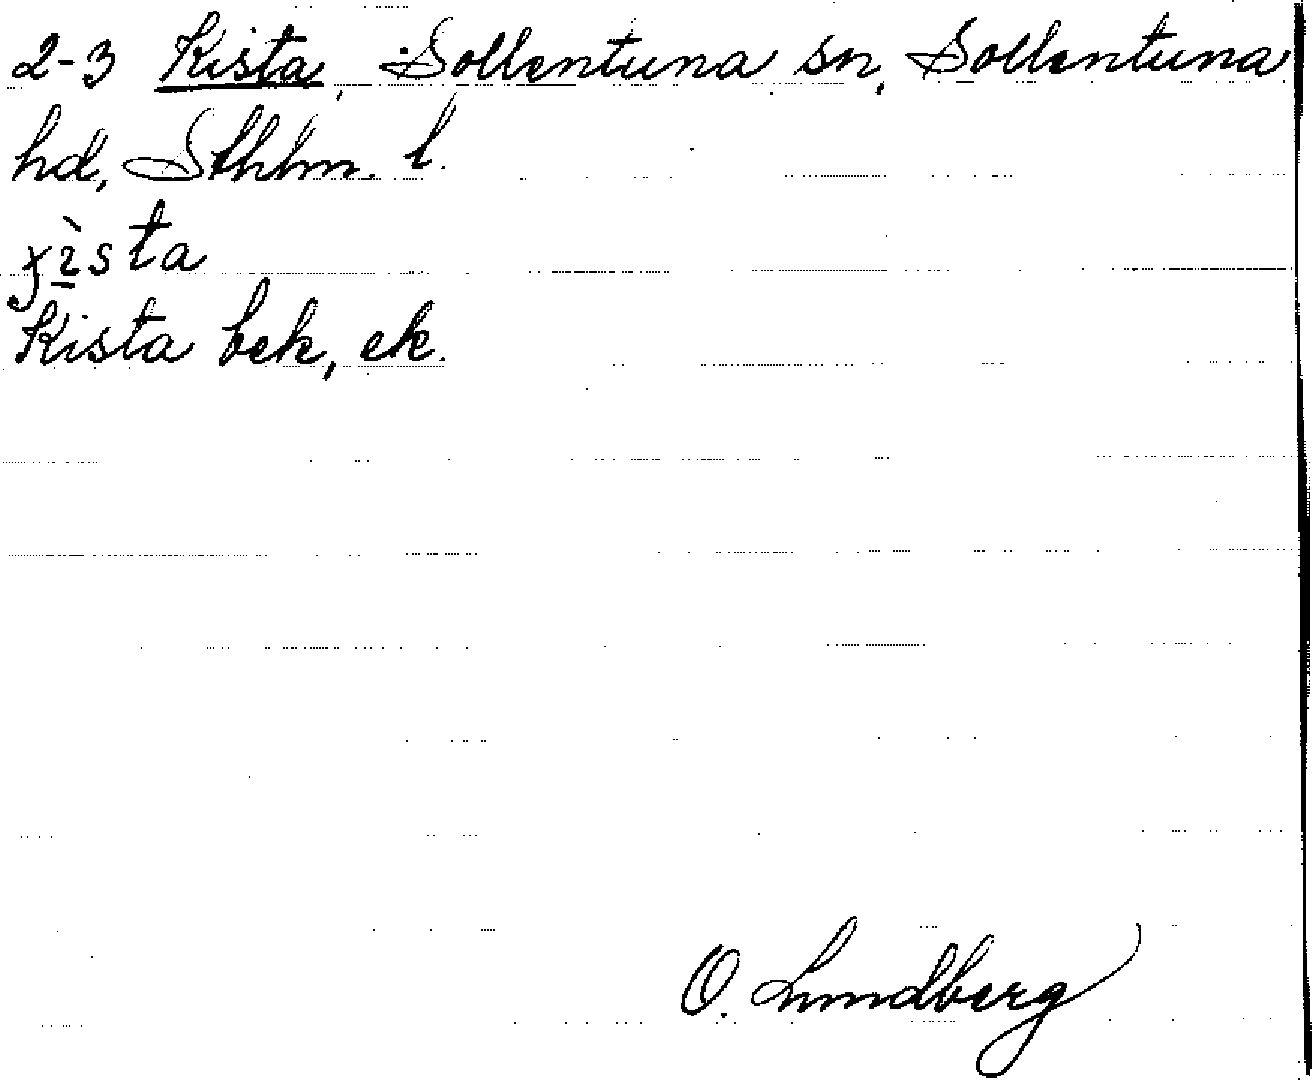 2-3 Kista, Sollentuna sn, Sollentuna
hd, Sthlm. l.
Kista bek, ek.
O. Lundberg